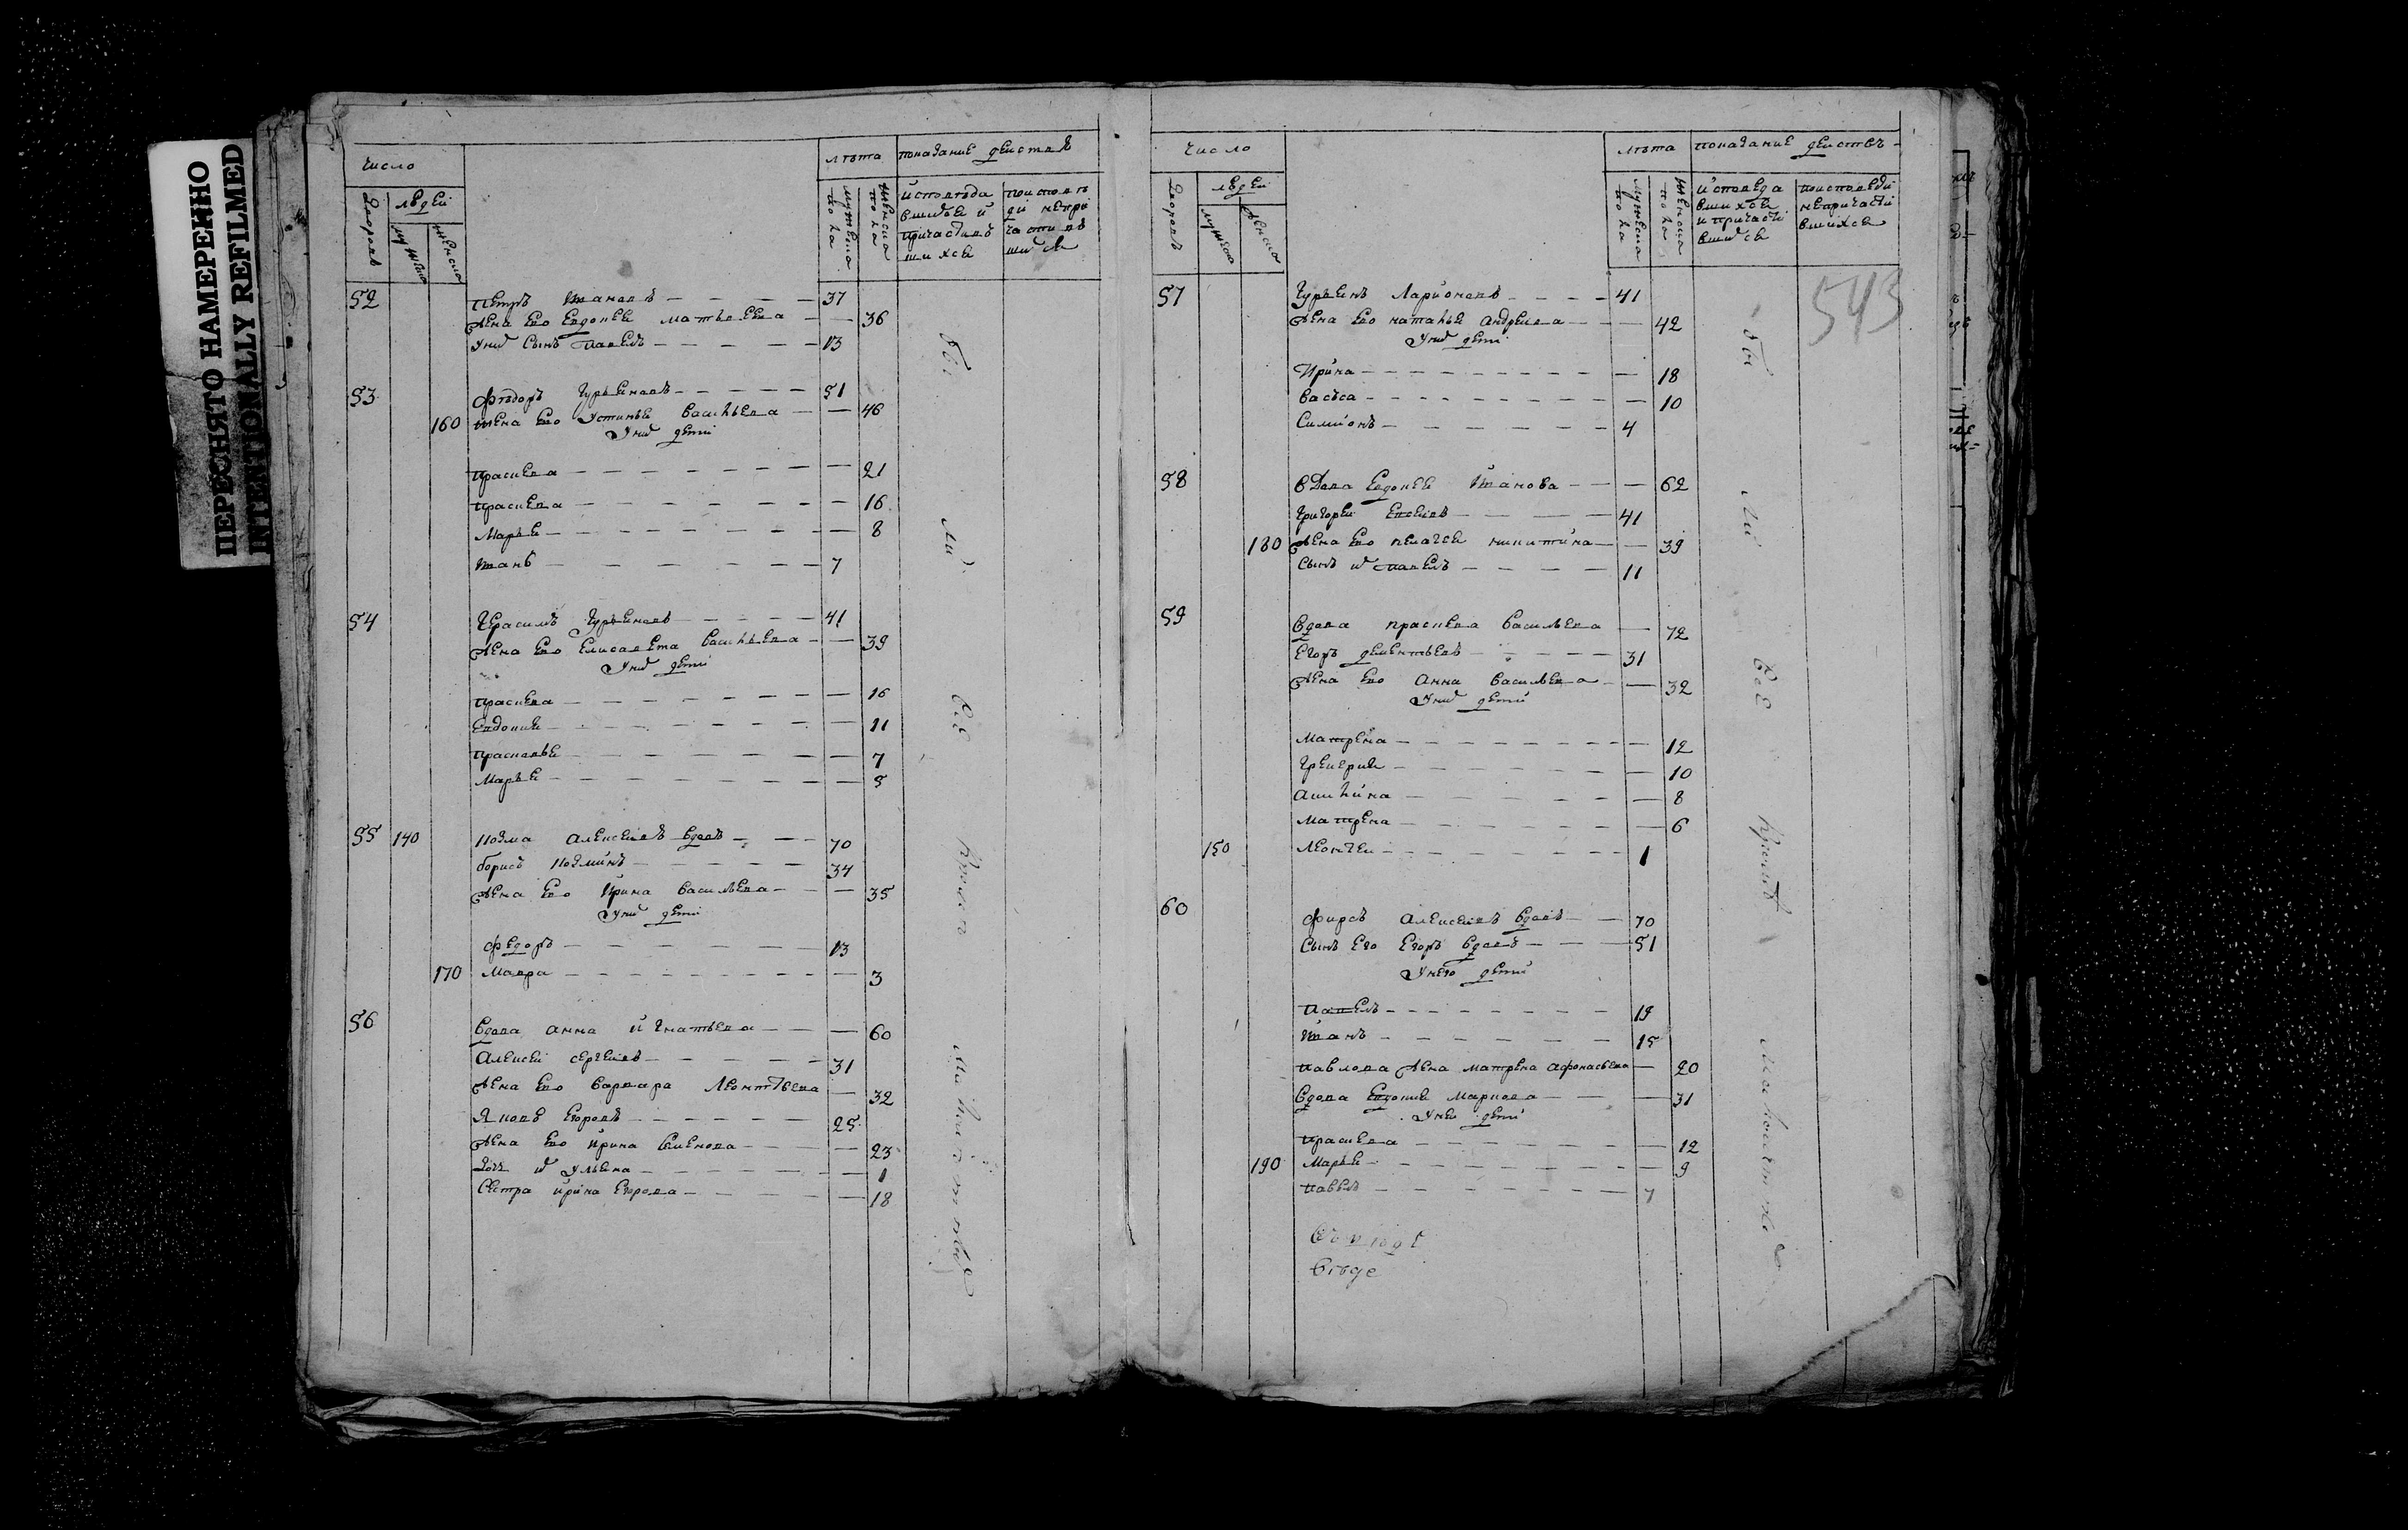 ПЕРЕСНЯТО НАМЕРЕННО
INTENTIONALLY REFILMED
число лѣта показание действъ
дворовъ людей мужеска женска мужеска пола женска пола
исповѣда вшихся и причастивъ шихся
по исповѣ ди непри частивъ шихся
52 Петръ Ивановъ 37
жена ево Евдокея Матвеева 36
у них сынъ Павелъ 13
53 Ѳедоръ Гурьеновъ 51
160 жена ево Устинья Васильева 46
у них дети
Прасковa 21
Прасковa 16
Марья 8
Иванъ 7
54 Герасимъ Гурьеновъ 41
жена ево Елисавета Васильева 39
у них дети
Прасковa 16
Евдокия 11
Прасковья 7
Марья 5
55 140 Козма Алексеевъ вдовъ 70
Борисъ Козминъ 34
жена ево Ирина Васильева 35
у них дети
Федоръ 13
170 Мавра 3
56 вдова Анна Игнатьева 60
Алексей Сергеевъ 31
жена ево Варвара Леонтьева 32
Яковъ Егоровъ 25
жена ево Ирина Семенова 23
дочь их Ульяна 1
сестра Ирина Егорова 18
число лѣта показание действъ
дворовъ людей мужеска женска мужеска пола женска пола
исповеда вшихся и причасти вшихся
по исповеди непричасти вшихся
543
57 Гурьенъ Ларионовъ 41
жена ево Наталья Андреева 42
у них дети
Ирина 18
Васса 10
Симионъ 4
58 вдова Евдокея Иванова 62
Григорей Евсеевъ 41
180 жена ево Пелагея Никитина 39
сынъ их Павелъ 11
59 вдова Прасковa Васильева 72
Егоръ Дементьевъ 31
жена ево Анна Васильева 32
у них дети
Матрена 12
10
Акилина 8
Матрена 6
150 Леонтей 1
60 Фирсъ Алексеевъ вдовъ 70
сынъ его Егоръ вдовъ 51
у него дети
Павелъ 19
Иванъ 15
Павлова жена Матрена Афонасьева 20
вдова Евдокия Маркова 31
у нея дети
Прасковa 12
190 Марья 9
Павелъ 7
бы ли все кроме малолетних
бы ли все кроме малолетних